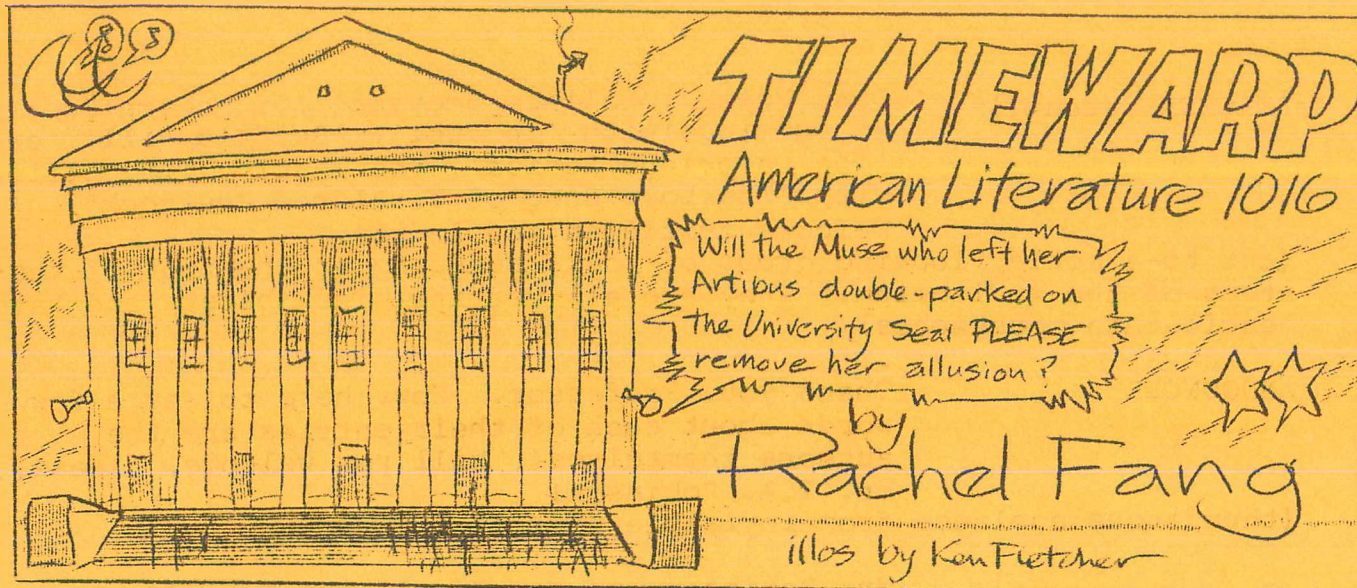 TIMEWARP
American Literature 1016
Will the Muse who left her
Artibus double-parked on
the University Seal PLEASE
remove her allusion?
by
Rachel Fang
illos by Ken Fletcher